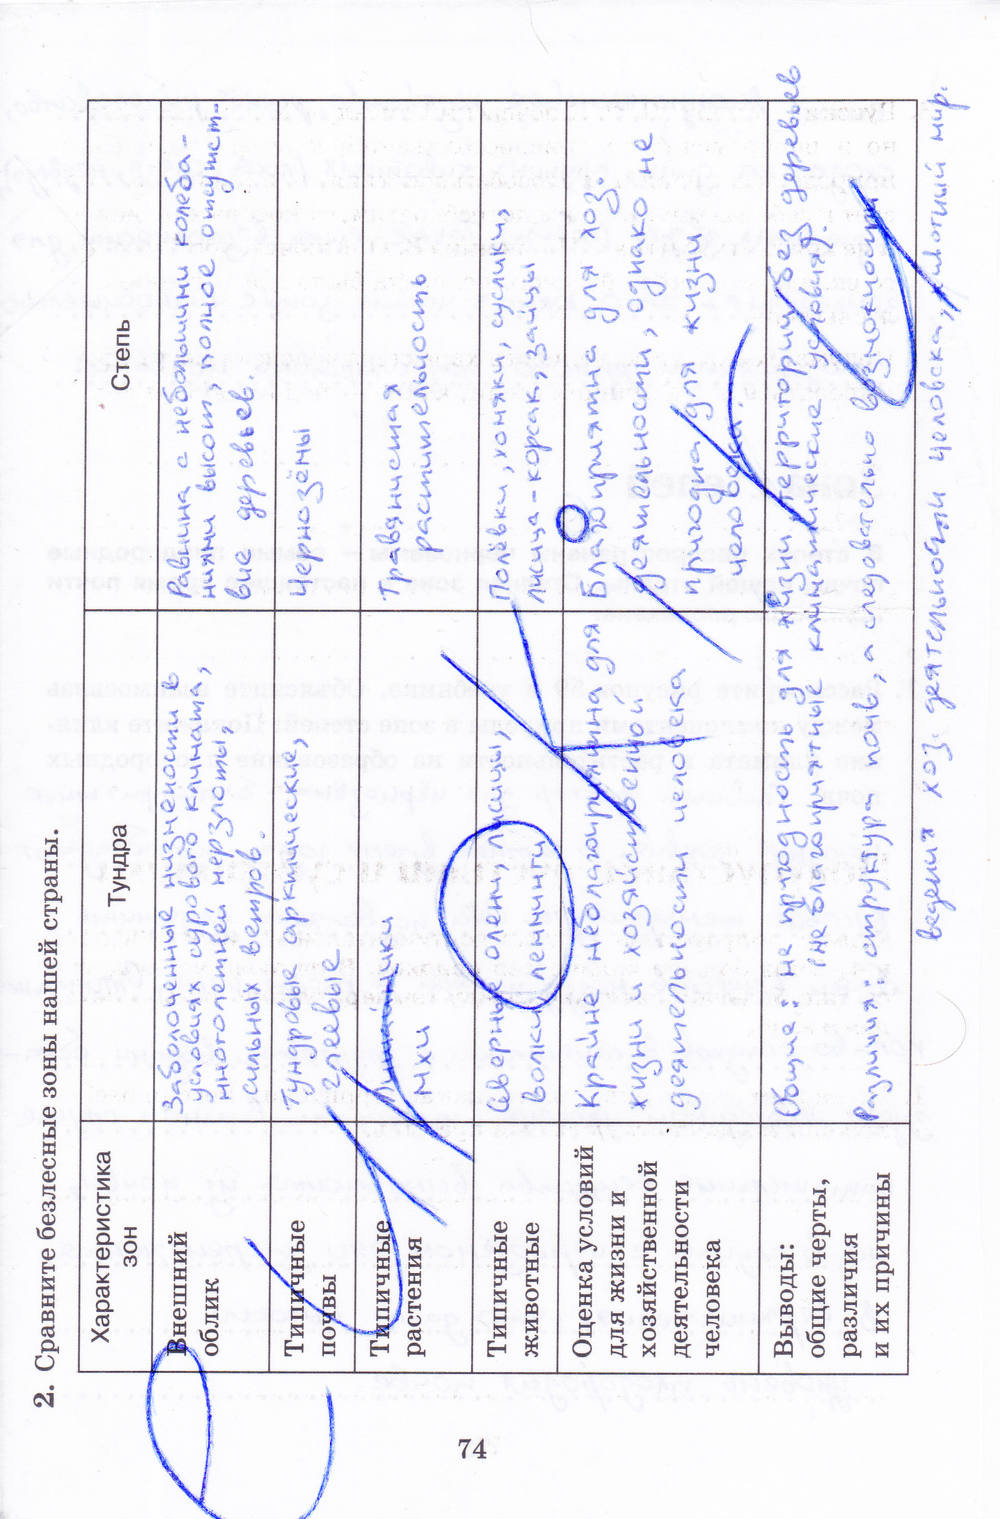 2. Сравните безлесные зоны нашей страны.
Характеристика
зон
Тундра
Степь
Внешний
облик
Заболоченные низменности в
условиях сурового климата,
многолетней мерзлоты,
сильных ветров.
Равнина с небольшими колеба-
ниями высот, полное отсутст-
вие деревьев
Типичные
почвы
Тундровые арктические,
глеевые
Чернозёмы
Типичные
растения
мхи
Травянистая
растительность
Типичные
животные
Северные олени, лисицы,
волки, лемминги
Полёвки, хомяки, суслики,
лисица-корсак, зайцы
Оценка условий
для жизни и
хозяйственной
деятельности
человека
Крайне неблагоприятна для
жизни и хозяйственной
деятельности человека
Благоприятна для хоз.
деятельности, однако не
природа для жизни
человека
Выводы:
общие черты,
различия
и их причины
Общие: не пригодность для жизни территории без деревьев
неблагоприятные климатические условия.
Различия: структура почв, а следовательно возможности
ведения хоз. деятельности человека, животный мир.
74